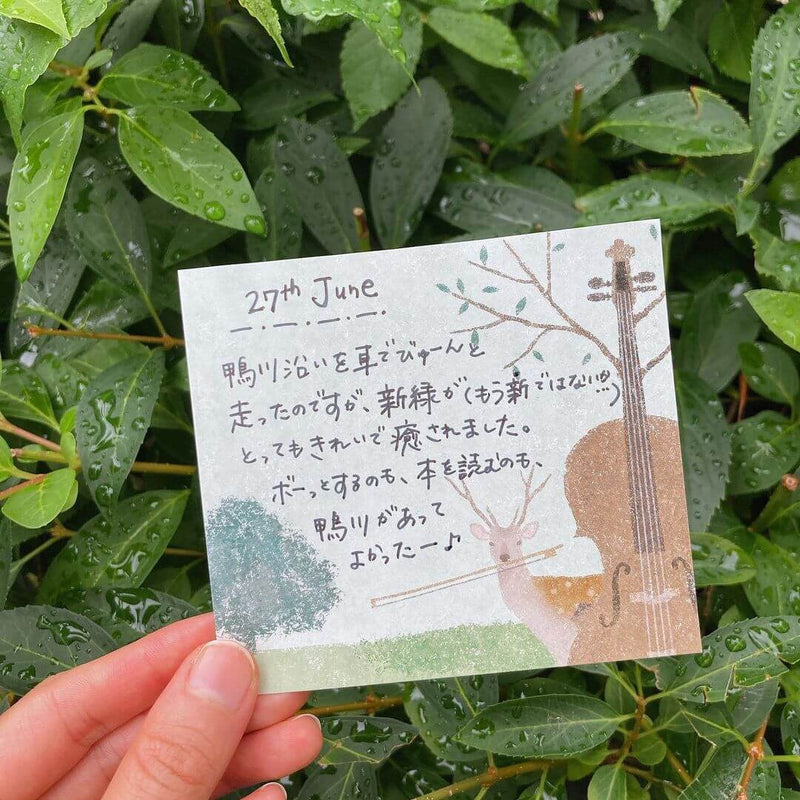 27th June
鴨川沿いを車でびゅーんと
走ったのですが、新緑が(もう新ではない!!?)
とってもきれいで癒されました。
ボーっとするのも、本を読むのも、
鴨川があって
よかったー♪